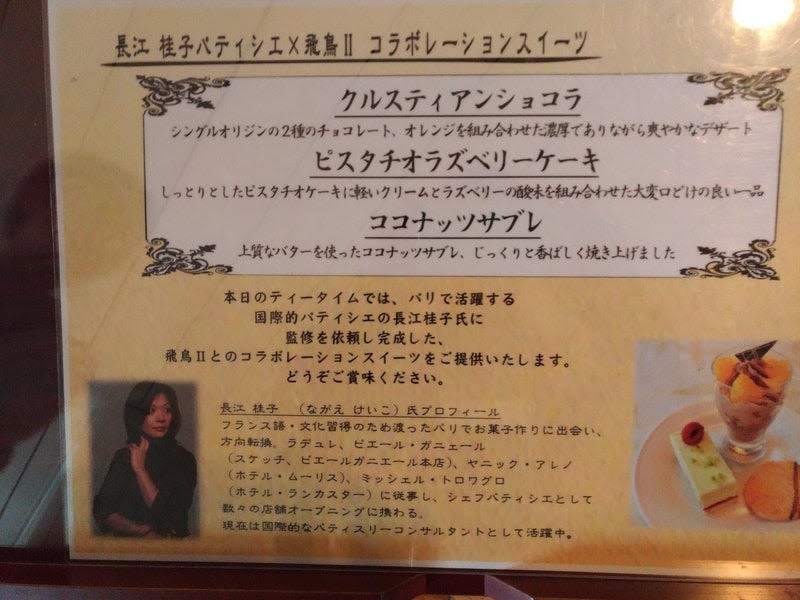 長江 桂子パティシエ×飛鳥Ⅱ コラボレーションスイーツ
クルスティアンショコラ
シングルオリジンの2種のチョコレート、オレンジを組み合わせた濃厚でありながら爽やかなデザート
ピスタチオラズベリーケーキ
しっとりとしたピスタチオケーキに軽いクリームとラズベリーの酸味を組み合わせた大変口どけの良い一品
ココナッツサブレ
上質なバターを使ったココナッツサブレ、じっくりと香ばしく焼き上げました
本日のティータイムでは、パリで活躍する
国際的パティシエの長江桂子氏に
監修を依頼し完成した、
飛鳥Ⅱとのコラボレーションスイーツをご提供いたします。
どうぞご賞味ください。
長江 桂子 （ながえ けいこ）氏プロフィール
フランス語・文化習得のため渡ったパリでお菓子作りに出会い、
方向転換。ラデュレ、ピエール・ガニェール
（スケッチ、ピエールガニエール本店）、ヤニック・アレノ
（ホテル・ムーリス）、ミッシェル・トロワグロ
（ホテル・ランカスター）に従事し、シェフパティシエとして
数々の店舗オープニングに携わる。
現在は国際的なパティスリーコンサルタントとして活躍中。